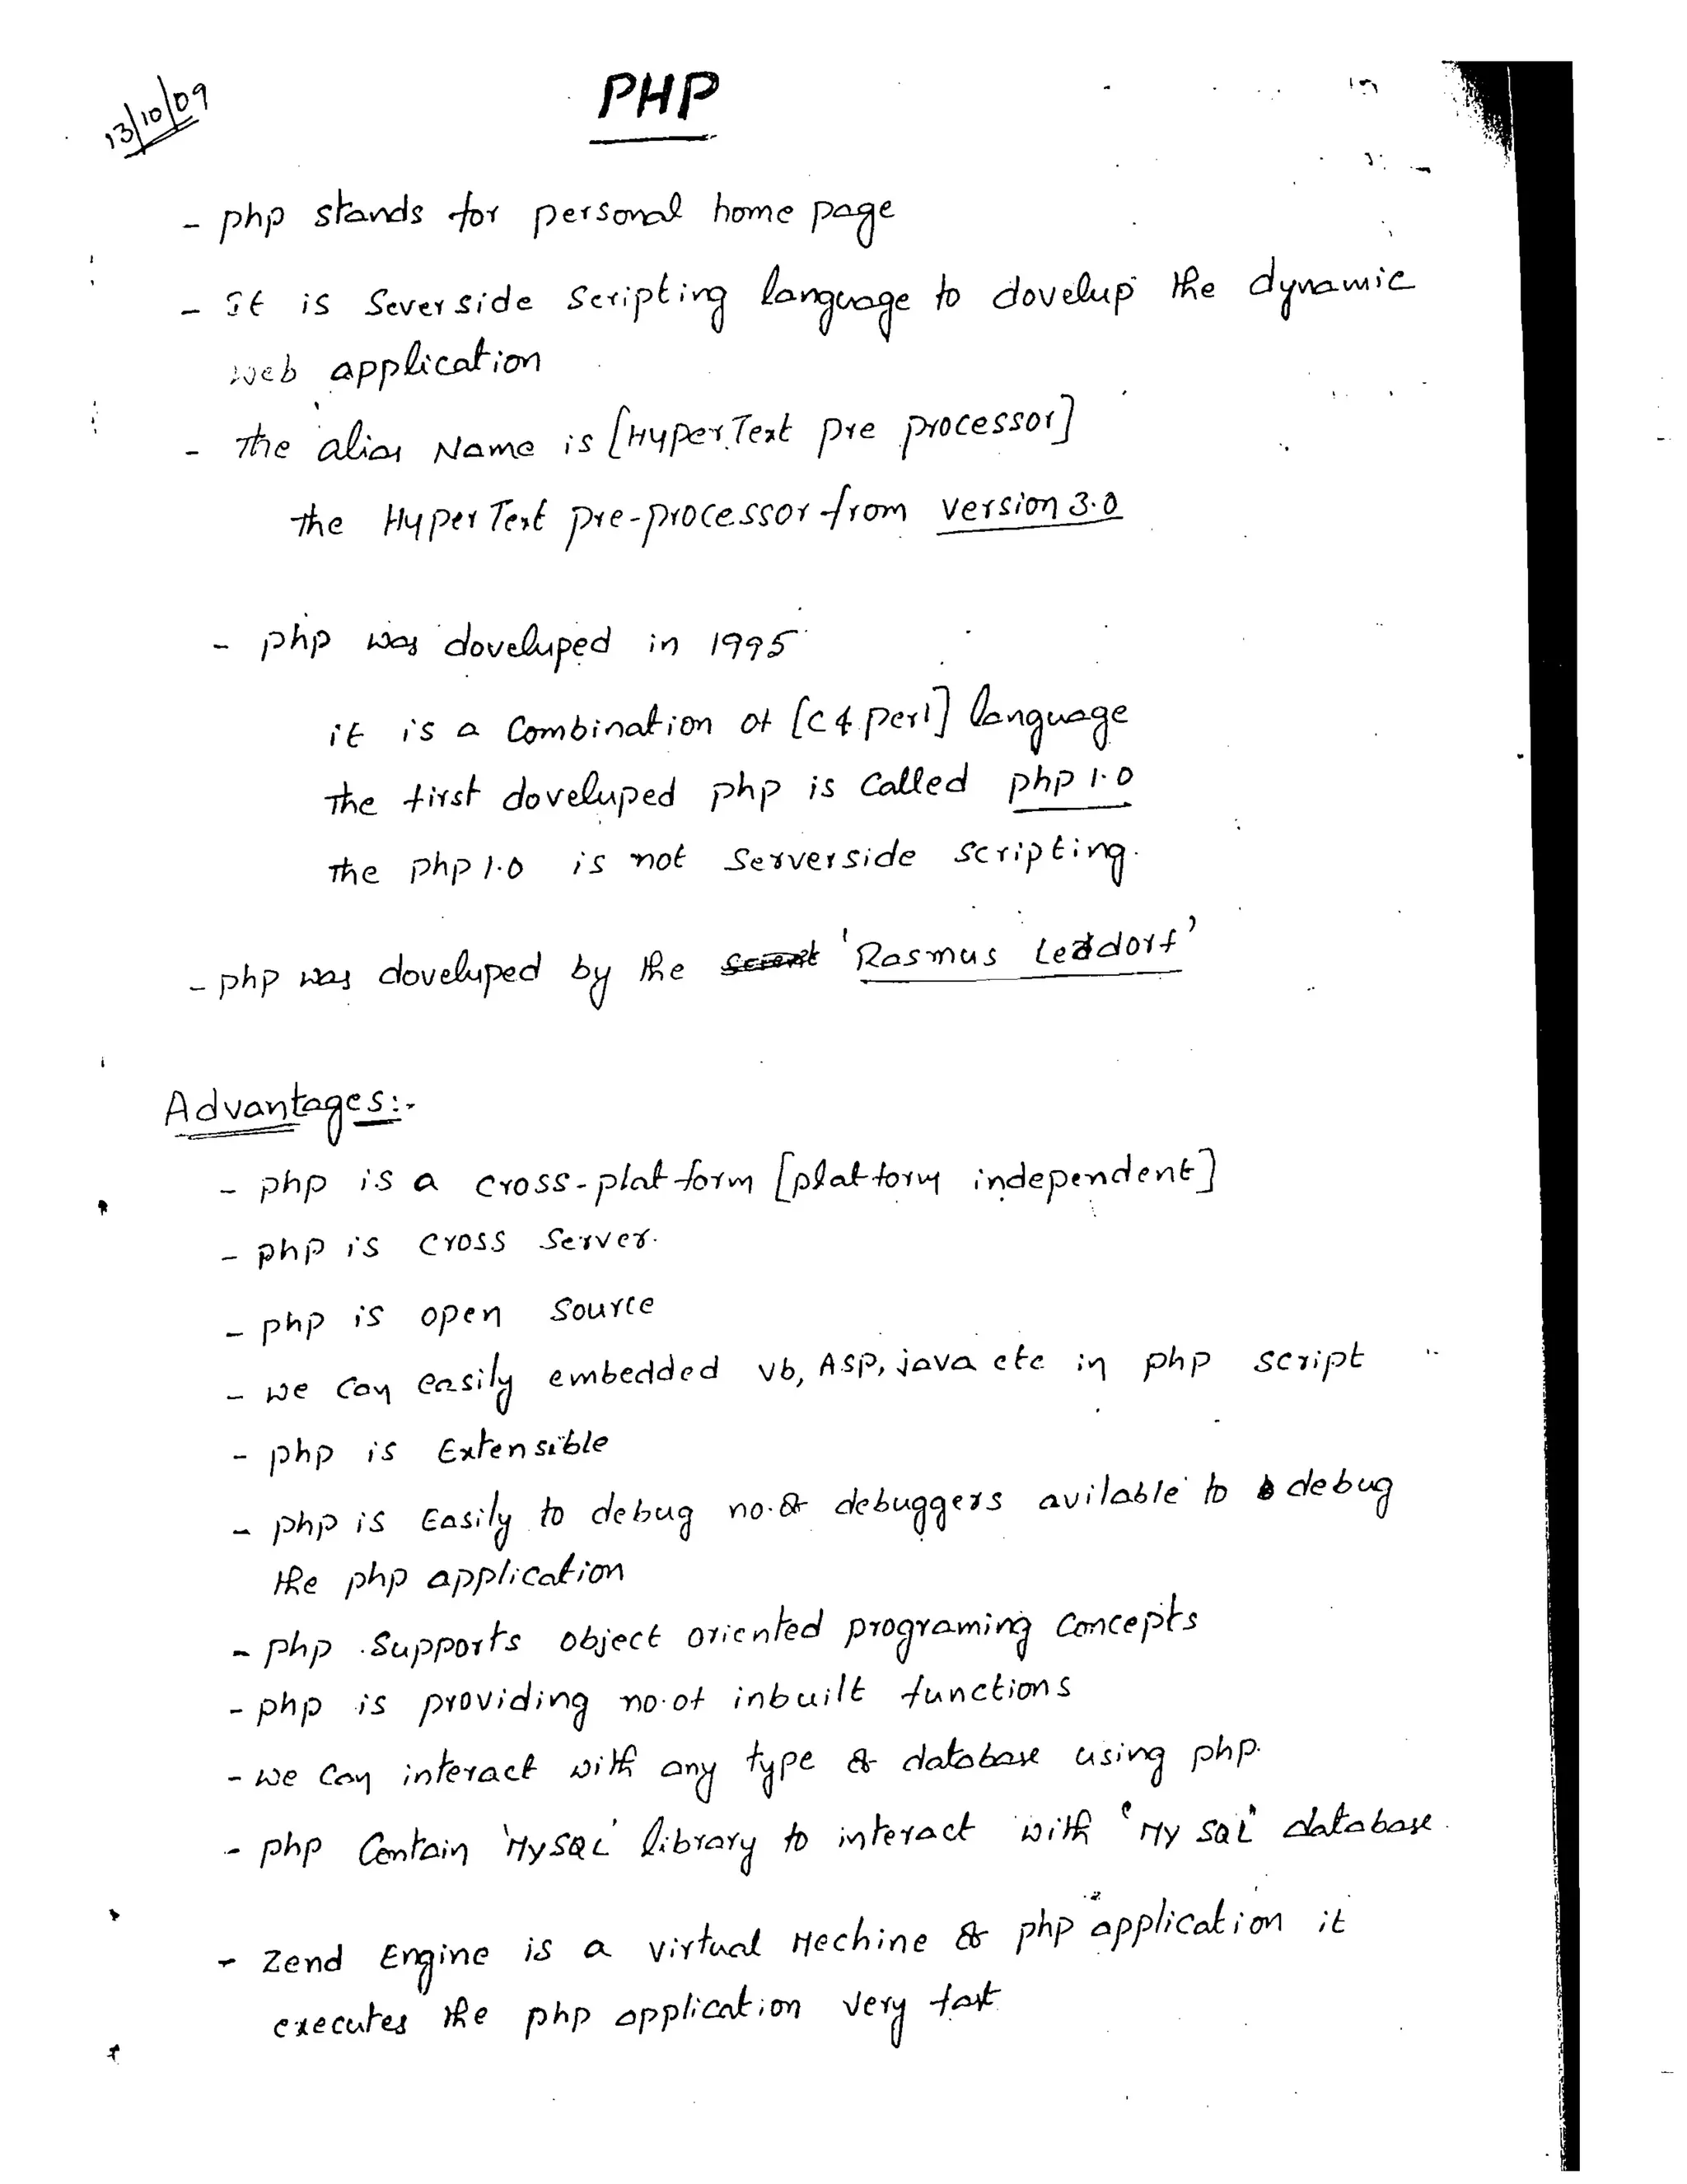 13/10/09
PHP
- php stands for personal home page
- It is Severside Scripting language to dovelup the dynamic
web application
- The alias Name is [HyperText pre processor]
the HyperText pre-processor from version 3.0
- php was doveluped in 1995
it is a Combination of [C & perl] language
The first doveluped php is called php 1.0
The php 1.0 is not Serverside scripting.
- php was doveluped by the 'Rasmus Leddorf'
Advantages:-
- php is a cross-platform [platform independent]
- php is cross server.
- php is open source
- we can easily embedded vb, ASP, java etc in php script
- php is Extensible
- php is Easily to debug no.of debuggers avilable to debug
the php application
- php supports object oriented programing concepts
- php is providing no.of inbuilt functions
- we can interact with any type of database using php.
- php Contain 'MySQL' library to interact with 'My SQL' database.
- Zend Engine is a virtual Mechine of php application it
executes the php application very fast